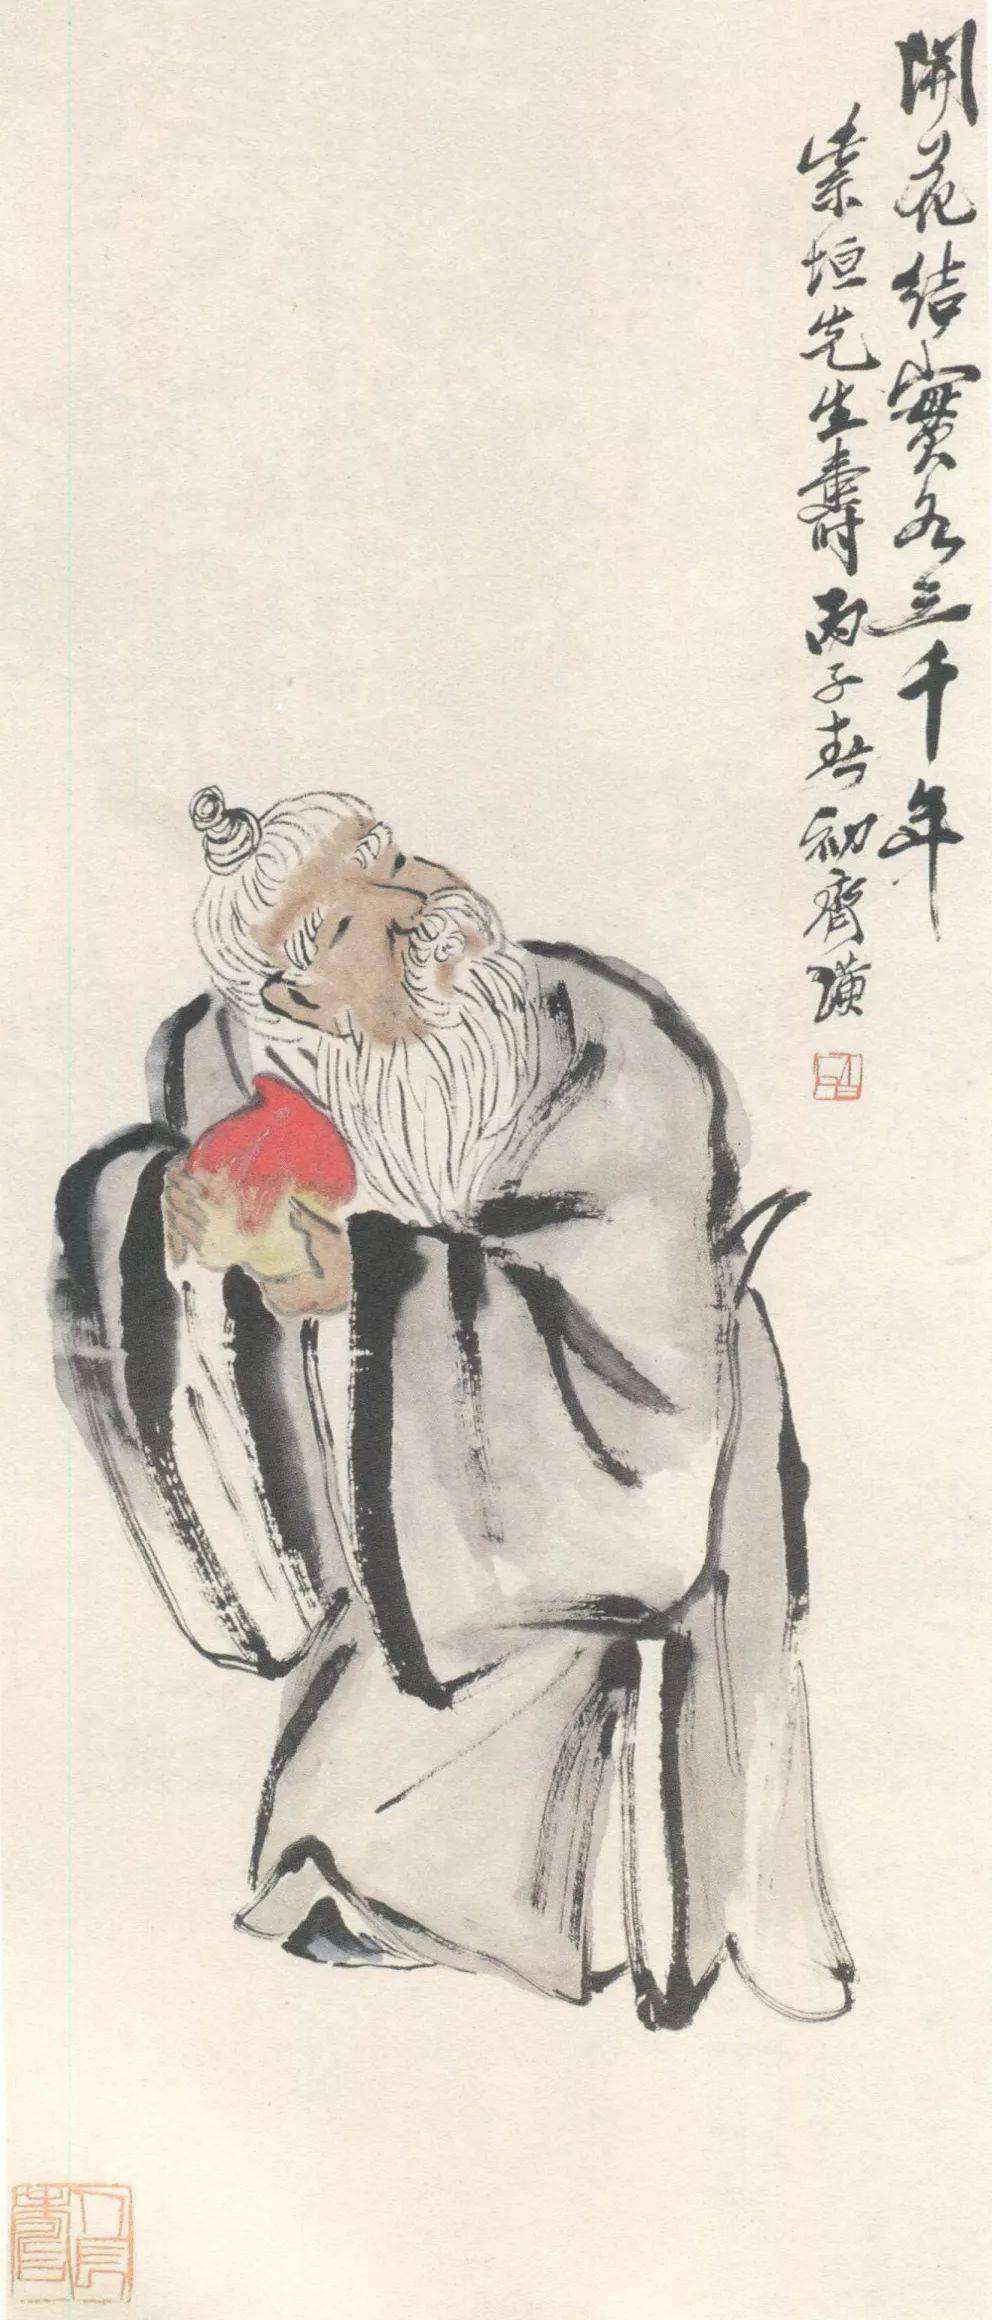 開花結實各三千年
紫垣先生壽 丙子春初 齊璜
人長壽